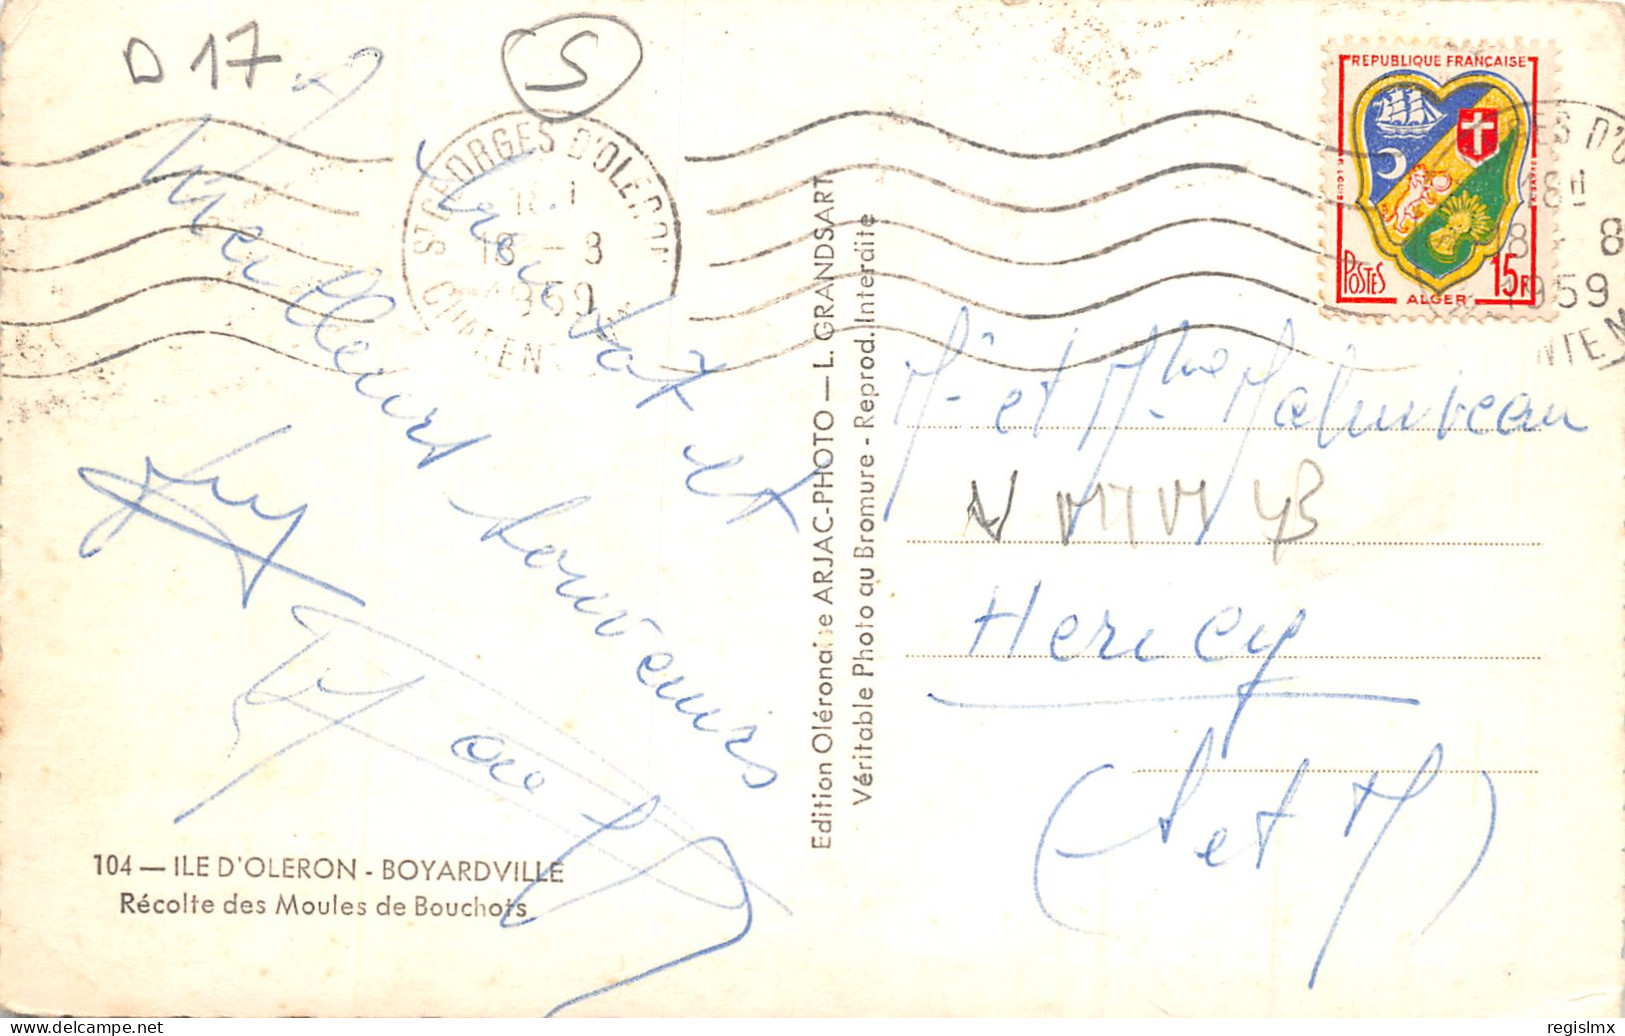 D 17
S
ST GEORGES D'OLERON
18 - 8
1959
CHAREN
REPUBLIQUE FRANÇAISE
POSTES
ALGER
15F
ES D'O
18H
18 - 8
1959
NTE
Meilleurs souvenirs
et
M. et Mme
Hericy
(S et M)
Edition Oléronaise ARJAC-PHOTO — L. GRANDSART
Véritable Photo au Bromure - Reprod. Interdite
104 — ILE D'OLERON - BOYARDVILLE
Récolte des Moules de Bouchots
www.delcampe.net
regislmx